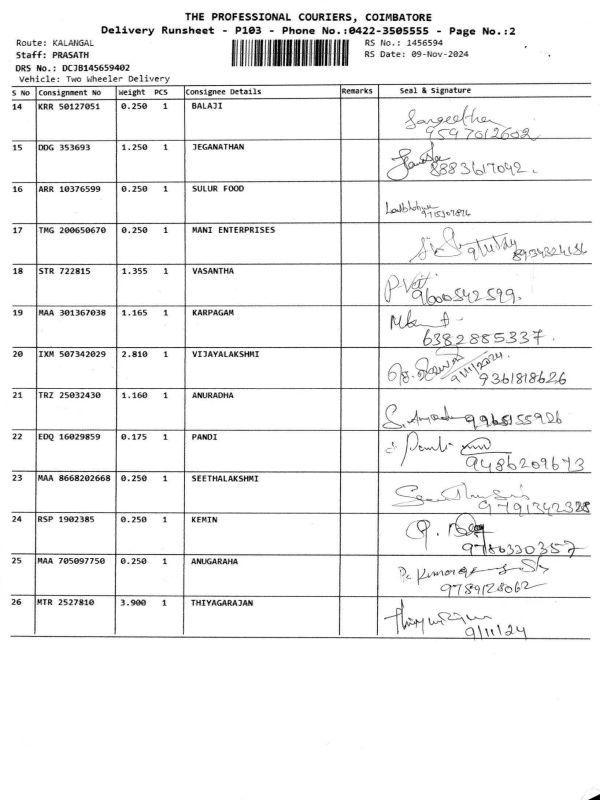 THE PROFESSIONAL COURIERS, COIMBATORE
Delivery Runsheet - P103 - Phone No.:0422-3505555 - Page No.:2
Route: KALANGAL RS No.: 1456594
Staff: PRASATH RS Date: 09-Nov-2024
DRS No.: DCJB145659402
Vehicle: Two Wheeler Delivery
S No Consignment No Weight PCS Consignee Details Remarks Seal & Signature
14 KRR 50127051 0.250 1 BALAJI
Sangeetha
9597012602
15 DDG 353693 1.250 1 JEGANATHAN
8883617042.
16 ARR 10376599 0.250 1 SULUR FOOD
17 TMG 200650670 0.250 1 MANI ENTERPRISES
18 STR 722815 1.355 1 VASANTHA
9600542599.
19 MAA 301367038 1.165 1 KARPAGAM
6382885337.
20 IXM 507342029 2.810 1 VIJAYALAKSHMI
9/11/2024.
9361818626
21 TRZ 25032430 1.160 1 ANURADHA
9965155926
22 EDQ 16029859 0.175 1 PANDI
9486209673
23 MAA 8668202668 0.250 1 SEETHALAKSHMI
24 RSP 1902385 0.250 1 KEMIN
9786330357
25 MAA 705097750 0.250 1 ANUGARAHA
9789128062
26 MTR 2527810 3.900 1 THIYAGARAJAN
9/11/24